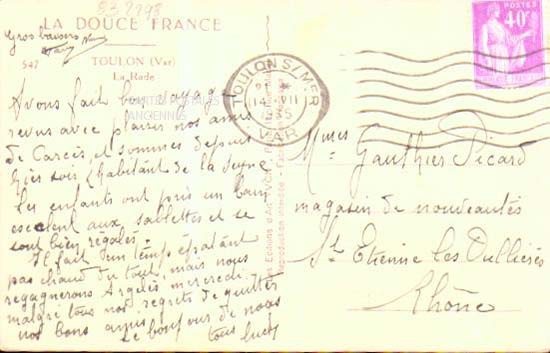 83 2298
LA DOUCE FRANCE
Gros baisers
547
TOULON (Var)
La Rade
CARTES POSTALES
ANCIENNES
Avons fait bon voyage
revus avec plaisir nos amis
de Carcès, et sommes depuis
hier soir habitant de la Seyne
Les enfants ont pris un bain
excelent aux sablettes et se
sont bien régalés
Il fait un temps épatant
pas chaud du tout, mais nous
regagnerons Argelès mercredi
malgré tous nos regrets de quitter
nos bons amis
Le bonjour de nous
tous Lucy
TOULON S/MER
14 VII
1935
VAR
POSTES
40c
Mmes Gauthier Picard
magasin de nouveautés
St Etienne les Oullières
Rhône